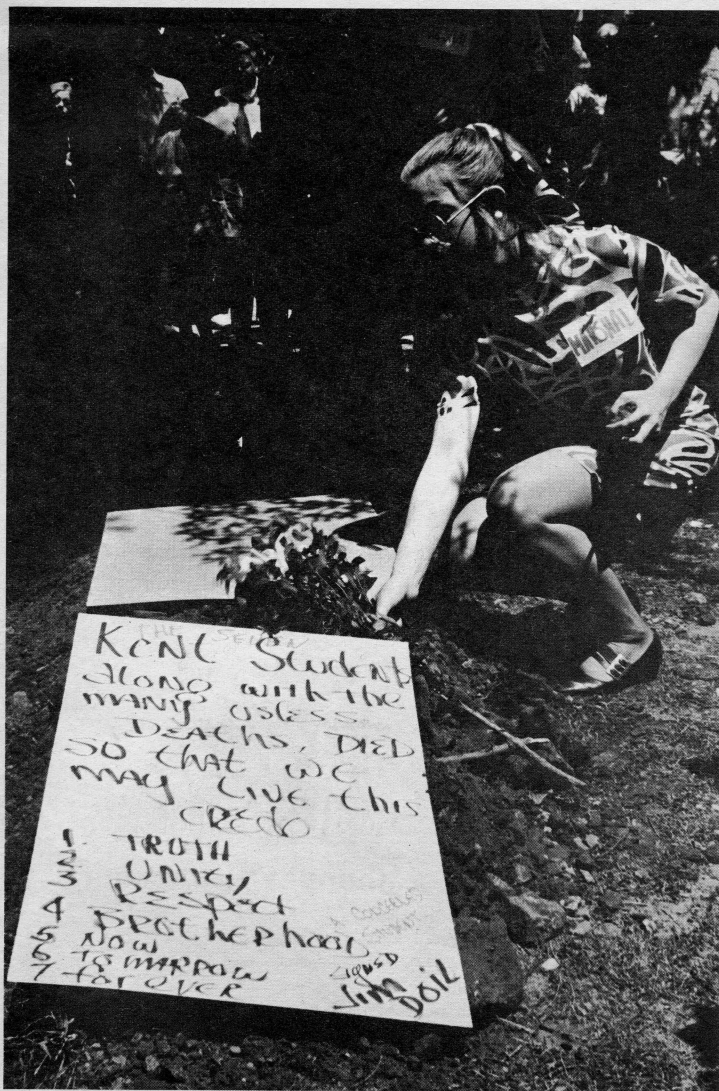 MARSHAL
THE
KENT Student
aLONG with the
MANY USLESS
DEATHS, DIED
SO that we
may LIVE this
CREDO
1. TRUTH
2 UNITY
3 Respect
4 BrotherHood
5 NOW
6 tomarrow
7 for over
signed
Jim DOIL